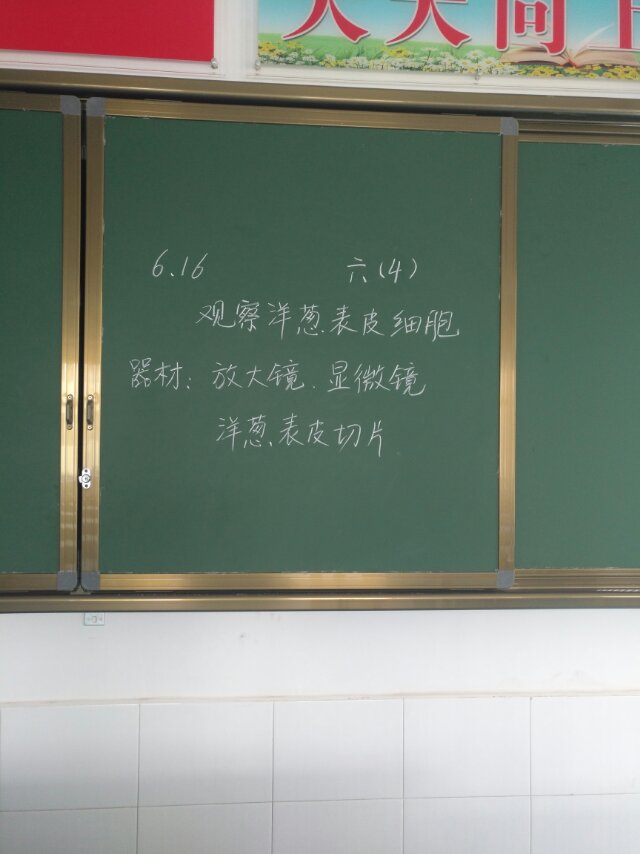 天天向上
6.16 六(4)
观察洋葱表皮细胞
器材：放大镜、显微镜
洋葱表皮切片